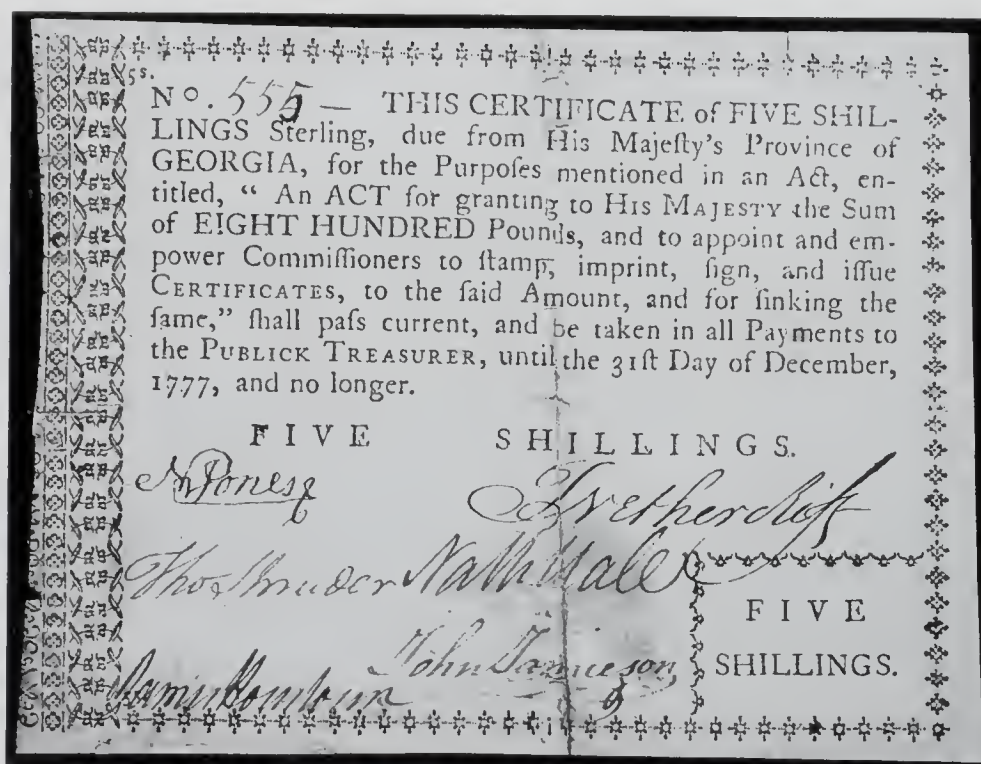 5s.
No. 555 — THIS CERTIFICATE of FIVE SHIL-
LINGS Sterling, due from His Majeſty's Province of
GEORGIA, for the Purpoſes mentioned in an Act, en-
titled, “ An ACT for granting to HIS MAJESTY the Sum
of EIGHT HUNDRED Pounds, and to appoint and em-
power Commiſſioners to ſtamp, imprint, ſign, and iſſue
CERTIFICATES, to the ſaid Amount, and for ſinking the
ſame,” ſhall paſs current, and be taken in all Payments to
the PUBLICK TREASURER, until the 31ſt Day of December,
1777, and no longer.
FIVE SHILLINGS.
NJones
Netherclift
Thos Nath Hale
John Jamieson
FIVE
SHILLINGS.